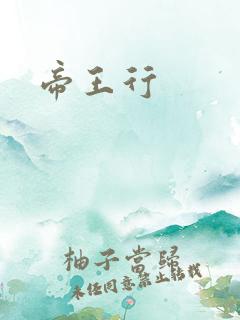 帝王行
柚子當歸
未经同意禁止转载